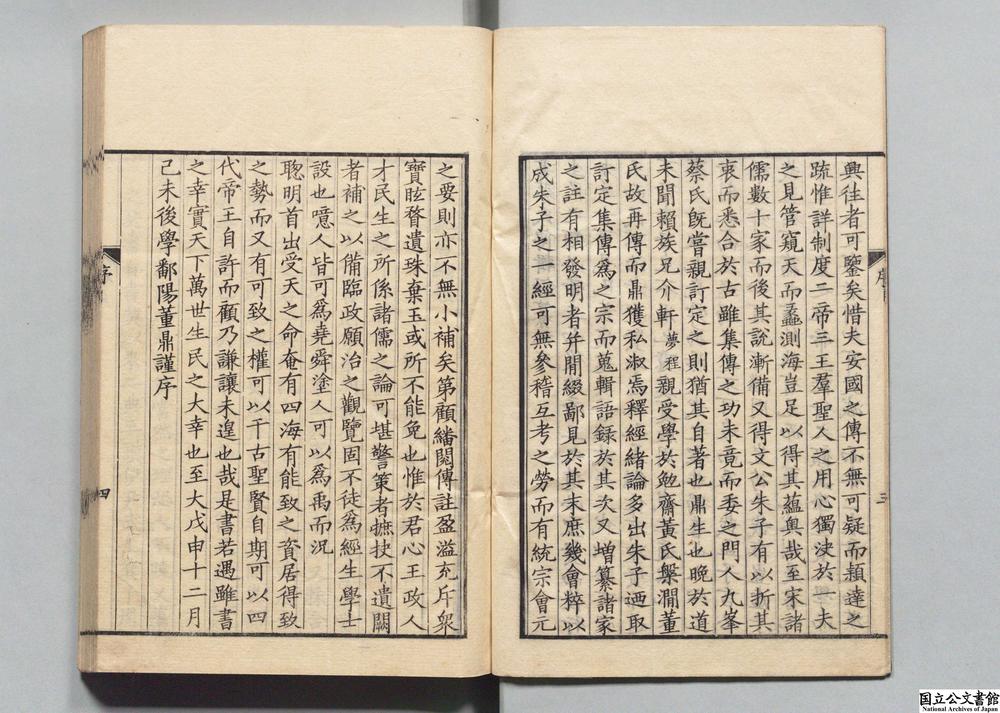 興往者可鑒矣惜夫安國之傳不無可疑而穎達之
疏惟詳制度二帝三王羣聖人之用心獨決於世夫
之見管窺天而蠡測海豈足以得其蘊奧哉至宋諸
儒數十家而後其說漸備又得文公朱子有以折其
衷而悉合於古雖集傳之功未竟而委之門人九峯
蔡氏旣嘗親訂定之則猶其自著也鼎生也晚於道
未聞賴族兄介軒夢程親受學於勉齋黃氏槃澗董
氏故再傳而鼎獲私淑焉釋經緒論多出朱子迺取
訂定集傳爲之宗而蒐輯語録於其次又增纂諸家
之註有相發明者并間綴鄙見於其末庶幾會粹以
成朱子之一經可無參稽互考之勞而有統宗會元
序
三
之要則亦不無小補矣第顧繙閱傳註盈溢充斥衆
寶眩瞀遺珠棄玉或所不能免也惟於君心王政人
才民生之所係諸儒之論可堪警策者摭抉不遺闕
者補之以備臨政願治之觀覽固不徒爲經生學士
設也噫人皆可爲堯舜塗人可以爲禹而況
聰明首出受天之命奄有四海有能致之資居得致
之勢而又有可致之權可以千古聖賢自期可以四
代帝王自許而顧乃謙讓未遑也哉是書若遇雖書
之幸實天下萬世生民之大幸也至大戊申十二月
己未後學鄱陽董鼎謹序
序
四
国立公文書館
National Archives of Japan